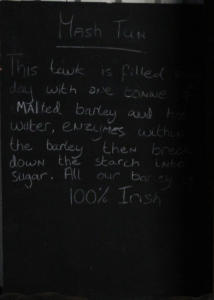 Mash Tun
This tank is filled
day with one tonne of
MALTED barley and
water, enzymes within
the barley then break
down the starch into
sugar. All our barley
100% Irish